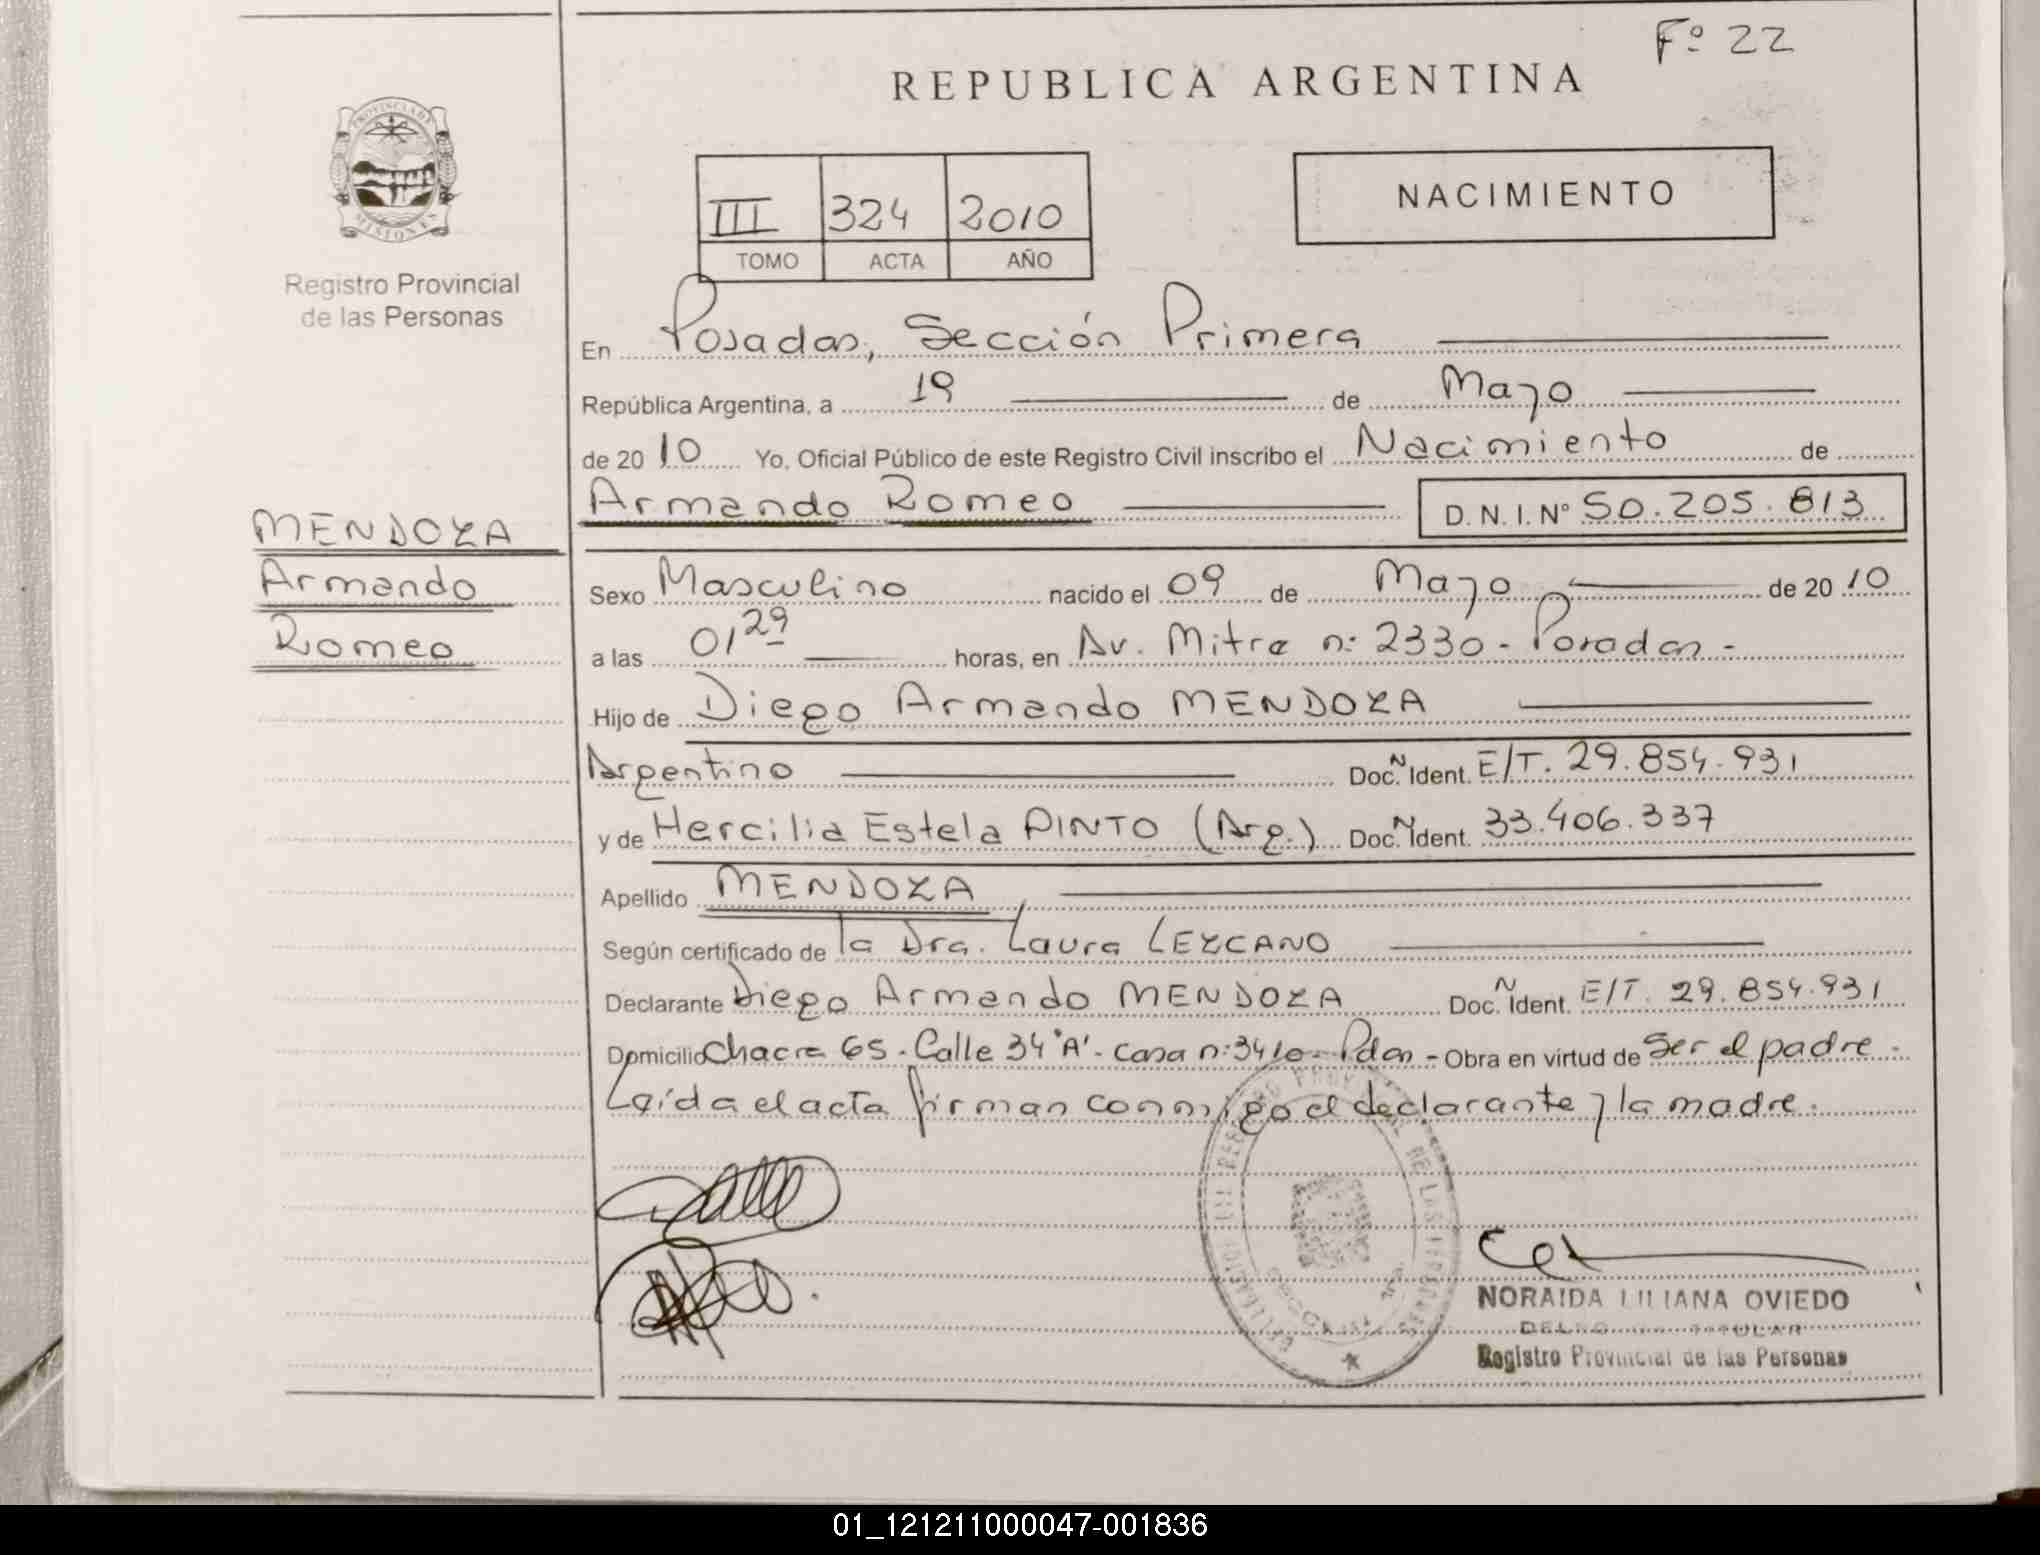 Fº 22
REPUBLICA ARGENTINA
PROVINCIA DE
MISIONES
Registro Provincial
de las Personas
III 324 2010
TOMO ACTA AÑO
NACIMIENTO
En Posadas, Sección Primera
República Argentina, a 19 de Mayo
de 2010 Yo, Oficial Público de este Registro Civil inscribo el Nacimiento de
Armando Romeo D. N. I. Nº 50.205.813
MENDOZA
Armando
Romeo
Sexo Masculino nacido el 09 de Mayo de 2010
a las 01 29 horas, en Av. Mitre nº 2330 - Posadas -
Hijo de Diego Armando MENDOZA
Argentino Doc. N Ident. E/T. 29.854.931
y de Hercilia Estela PINTO (Arg.) Doc. N Ident. 33.406.337
Apellido MENDOZA
Según certificado de la Dra. Laura LEZCANO
Declarante Diego Armando MENDOZA Doc. N Ident. E/T. 29.854.931
Domicilio Chacra 65 - Calle 34 "A" - casa nº 3410 - Pdas - Obra en virtud de Ser el padre -
Leída el acta firman conmigo el declarante y la madre.
NORAIDA LILIANA OVIEDO
Registro Provincial de las Personas
01_121211000047-001836